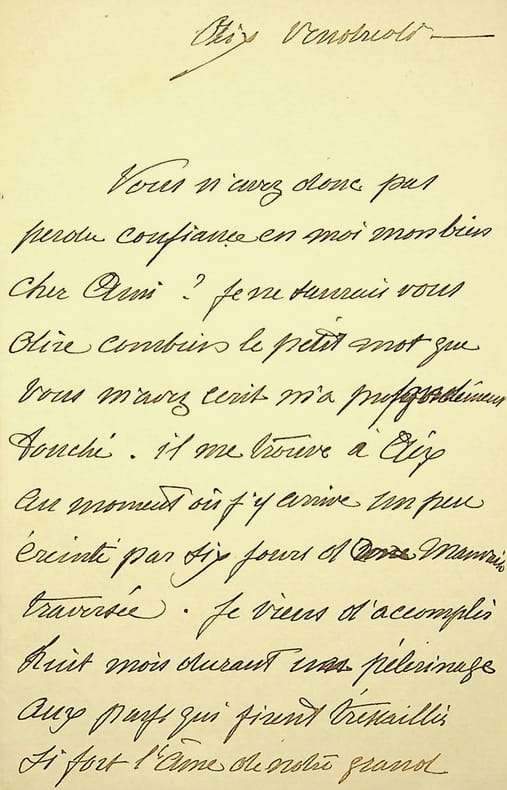 Aix Vendredi
Vous n'avez donc pas
perdu confiance en moi mon bien
cher Ami ? Je ne saurais vous
dire combien le petit mot que
vous m'avez écrit m'a profondément
touché . il me trouve à Aix
au moment où j'y arrive un peu
éreinté par six jours d'une mauvaise
traversée . Je viens d'accomplir
huit mois durant un pélerinage
aux pays qui firent tressaillir
si fort l'âme de notre grand